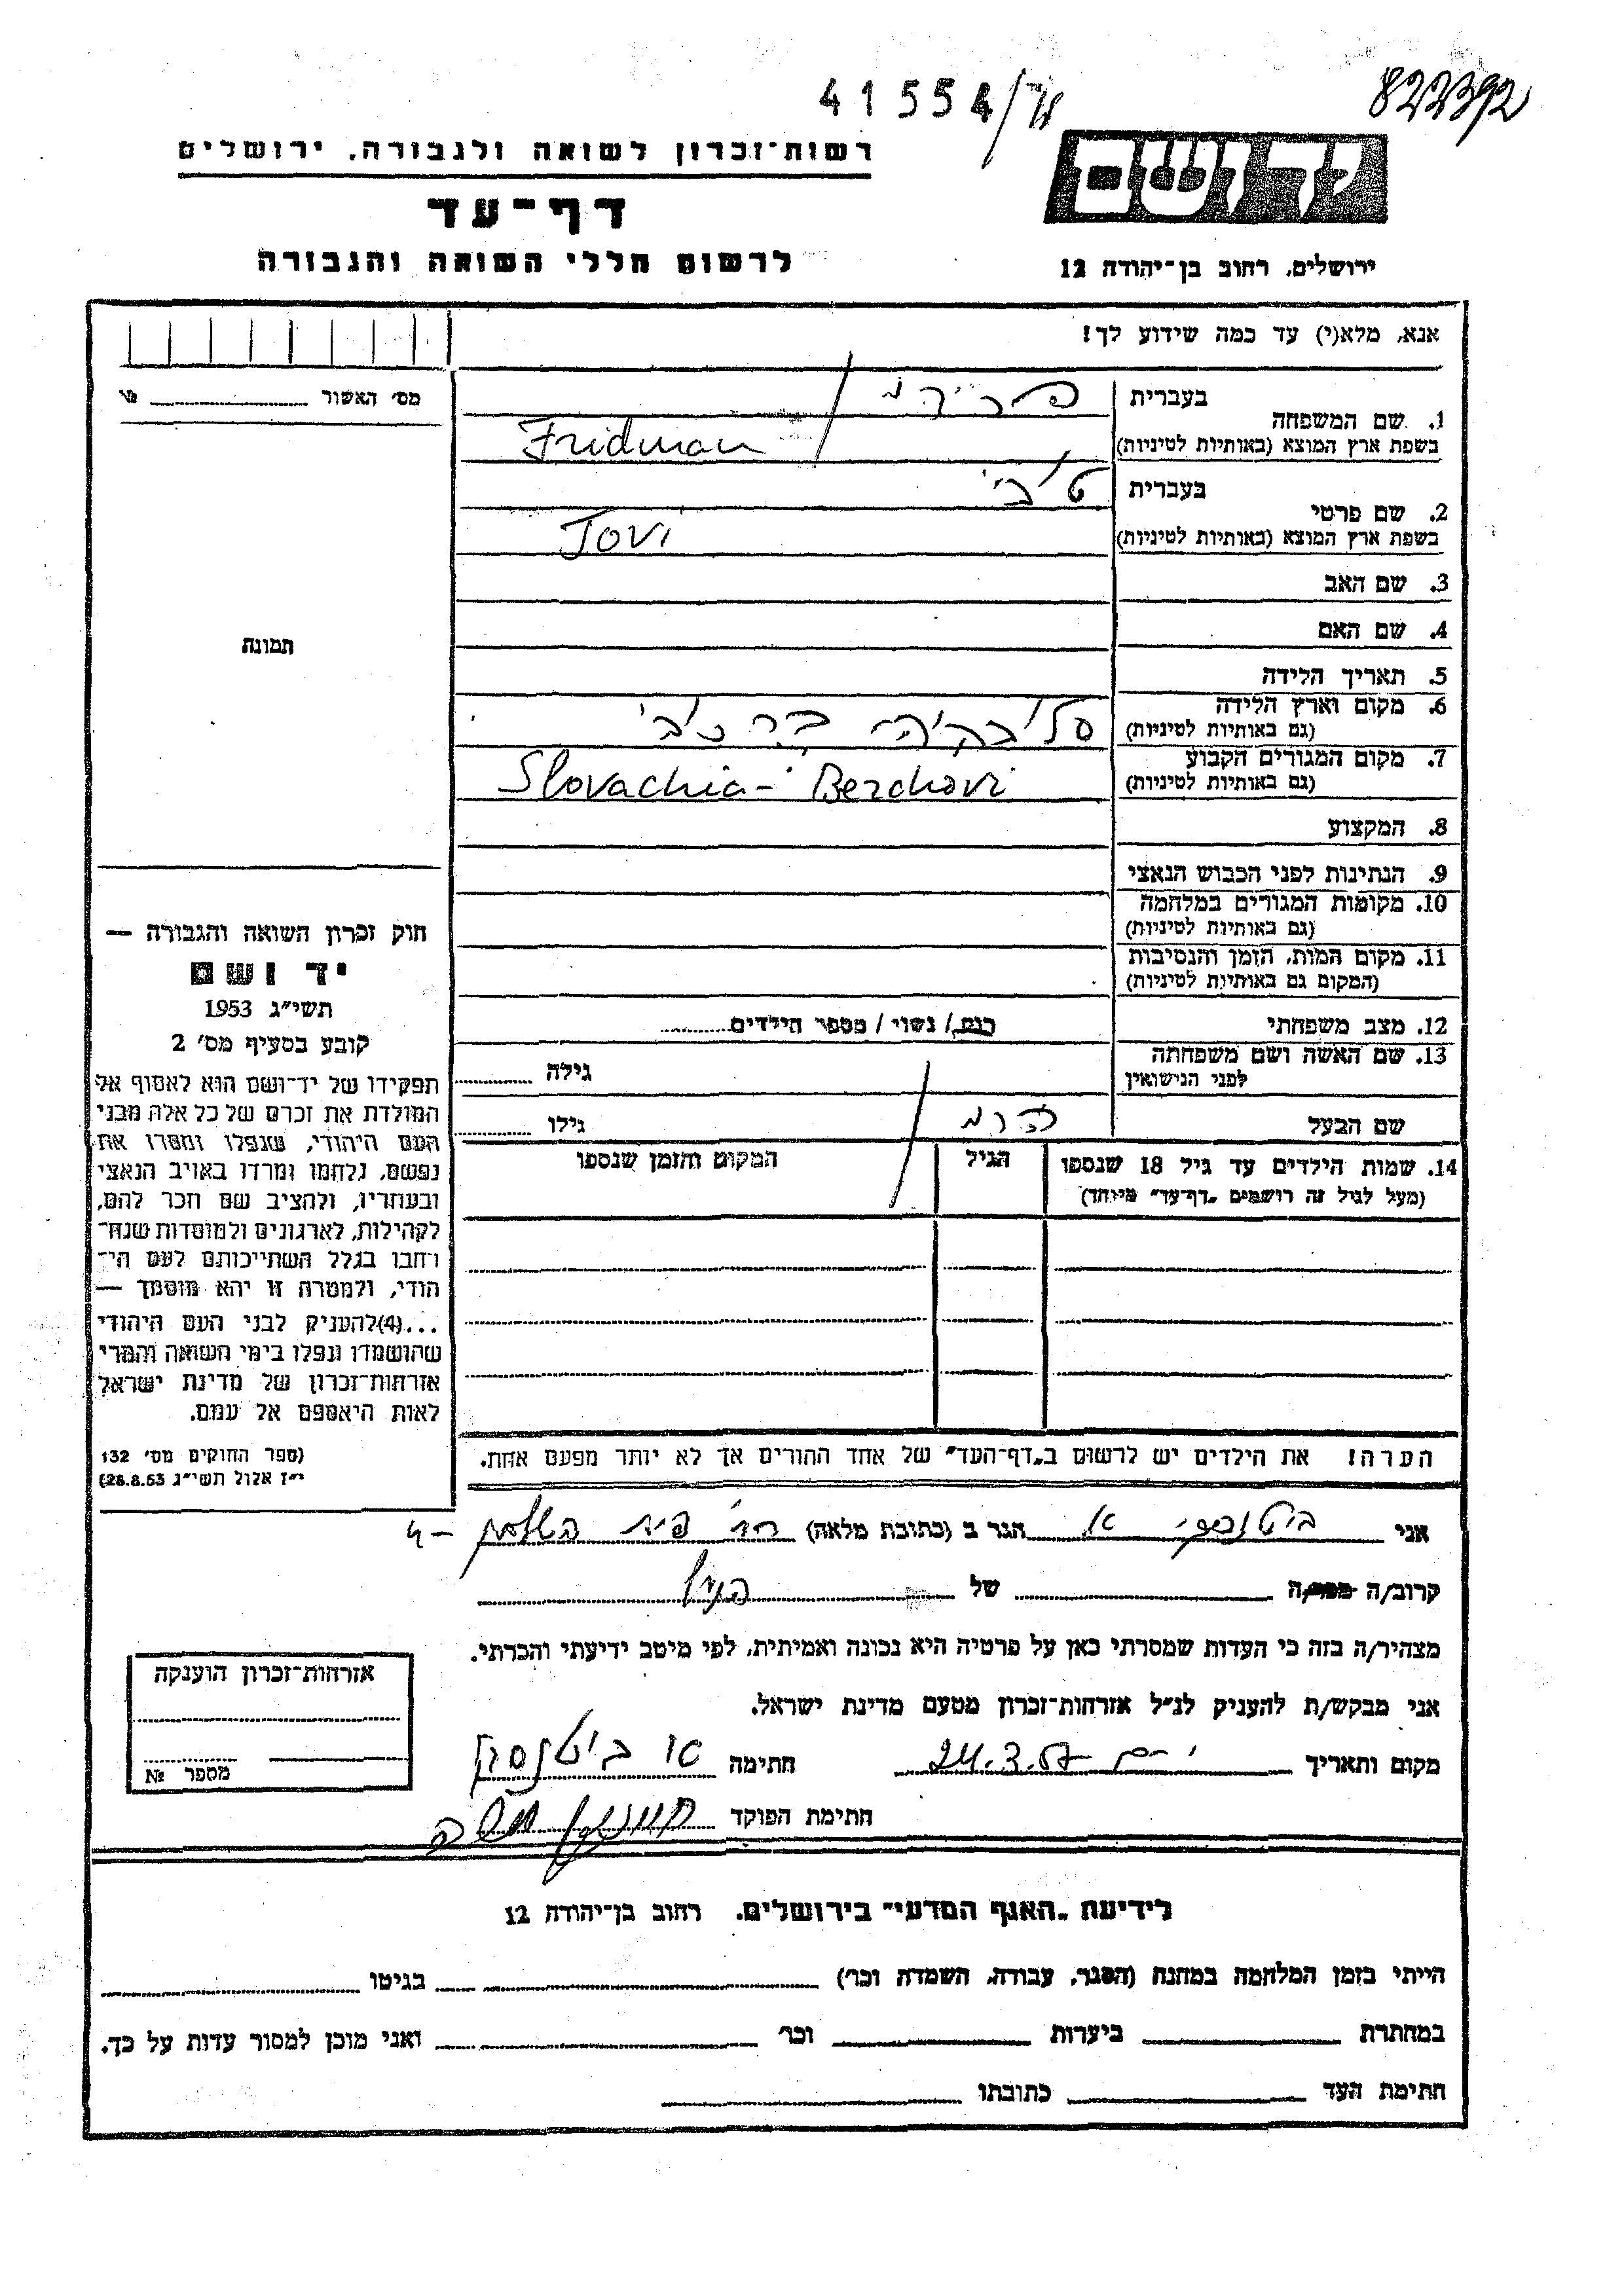 41554/
822392
רשות־זכרון לשואה ולגבורה, ירושלים
יד ושם
דף־עד
לרשום חללי השואה והגבורה
ירושלים, רחוב בן־יהודה 12
אנא, מלא(י) עד כמה שידוע לך!
מס׳ האשור № 
1. שם המשפחה בעברית פרידמן
בשפת ארץ המוצא (באותיות לטיניות) Fridman
2. שם פרטי בעברית טובי
בשפת ארץ המוצא (באותיות לטיניות) Tovi
3. שם האב
4. שם האם
תמונה
5. תאריך הלידה
6. מקום וארץ הלידה
(גם באותיות לטיניות)
7. מקום המגורים הקבוע
(גם באותיות לטיניות) Slovachia - Berchovi
8. המקצוע
9. הנתינות לפני הכבוש הנאצי
10. מקומות המגורים במלחמה
(גם באותיות לטיניות)
11. מקום המות, הזמן והנסיבות
(המקום גם באותיות לטיניות)
12. מצב משפחתי רוק/ נשוי / מספר הילדים
13. שם האשה ושם משפחתה
לפני הנישואין גילה
שם הבעל הרמן גילו
14. שמות הילדים עד גיל 18 שנספו הגיל המקום והזמן שנספו
(מעל לגיל זה רושמים „דף־עד״ מיוחד)
חוק זכרון השואה והגבורה —
יד ושם
תשי״ג 1953
קובע בסעיף מס׳ 2
תפקידו של יד־ושם הוא לאסוף אל
המולדת את זכרם של כל אלה מבני
העם היהודי, שנפלו ומסרו את
נפשם, נלחמו ומרדו באויב הנאצי
ובעוזריו, ולהציב שם וזכר להם,
לקהילות, לארגונים ולמוסדות שנח־
רבו בגלל השתייכותם לעם הי־
הודי, ולמטרה זו יהא מוסמך —
...(4)להעניק לבני העם היהודי
שהושמדו ונפלו בימי השואה והמרי
אזרחות־זכרון של מדינת ישראל
לאות היאספם אל עמם.
(ספר החוקים מס׳ 132
י״ז אלול תשי״ג 28.8.53)
הערה! את הילדים יש לרשום ב„דף־העד״ של אחד ההורים אך לא יותר מפעם אחת.
אני הגר ב (כתובת מלאה)
קרוב/ה מכר/ה של
מצהיר/ה בזה כי העדות שמסרתי כאן על פרטיה היא נכונה ואמיתית, לפי מיטב ידיעתי והכרתי.
אני מבקש/ת להעניק לנ״ל אזרחות־זכרון מטעם מדינת ישראל.
מקום ותאריך 24.3.57 חתימה
חתימת הפוקד
אזרחות־זכרון הוענקה
מספר №
לידיעת „האגף המדעי״ בירושלים, רחוב בן־יהודה 12
הייתי בזמן המלחמה במחנה (הסגר, עבודה, השמדה וכר׳) בגיטו
במחתרת ביערות וכר׳ ואני מוכן למסור עדות על כך.
חתימת העד כתובתו